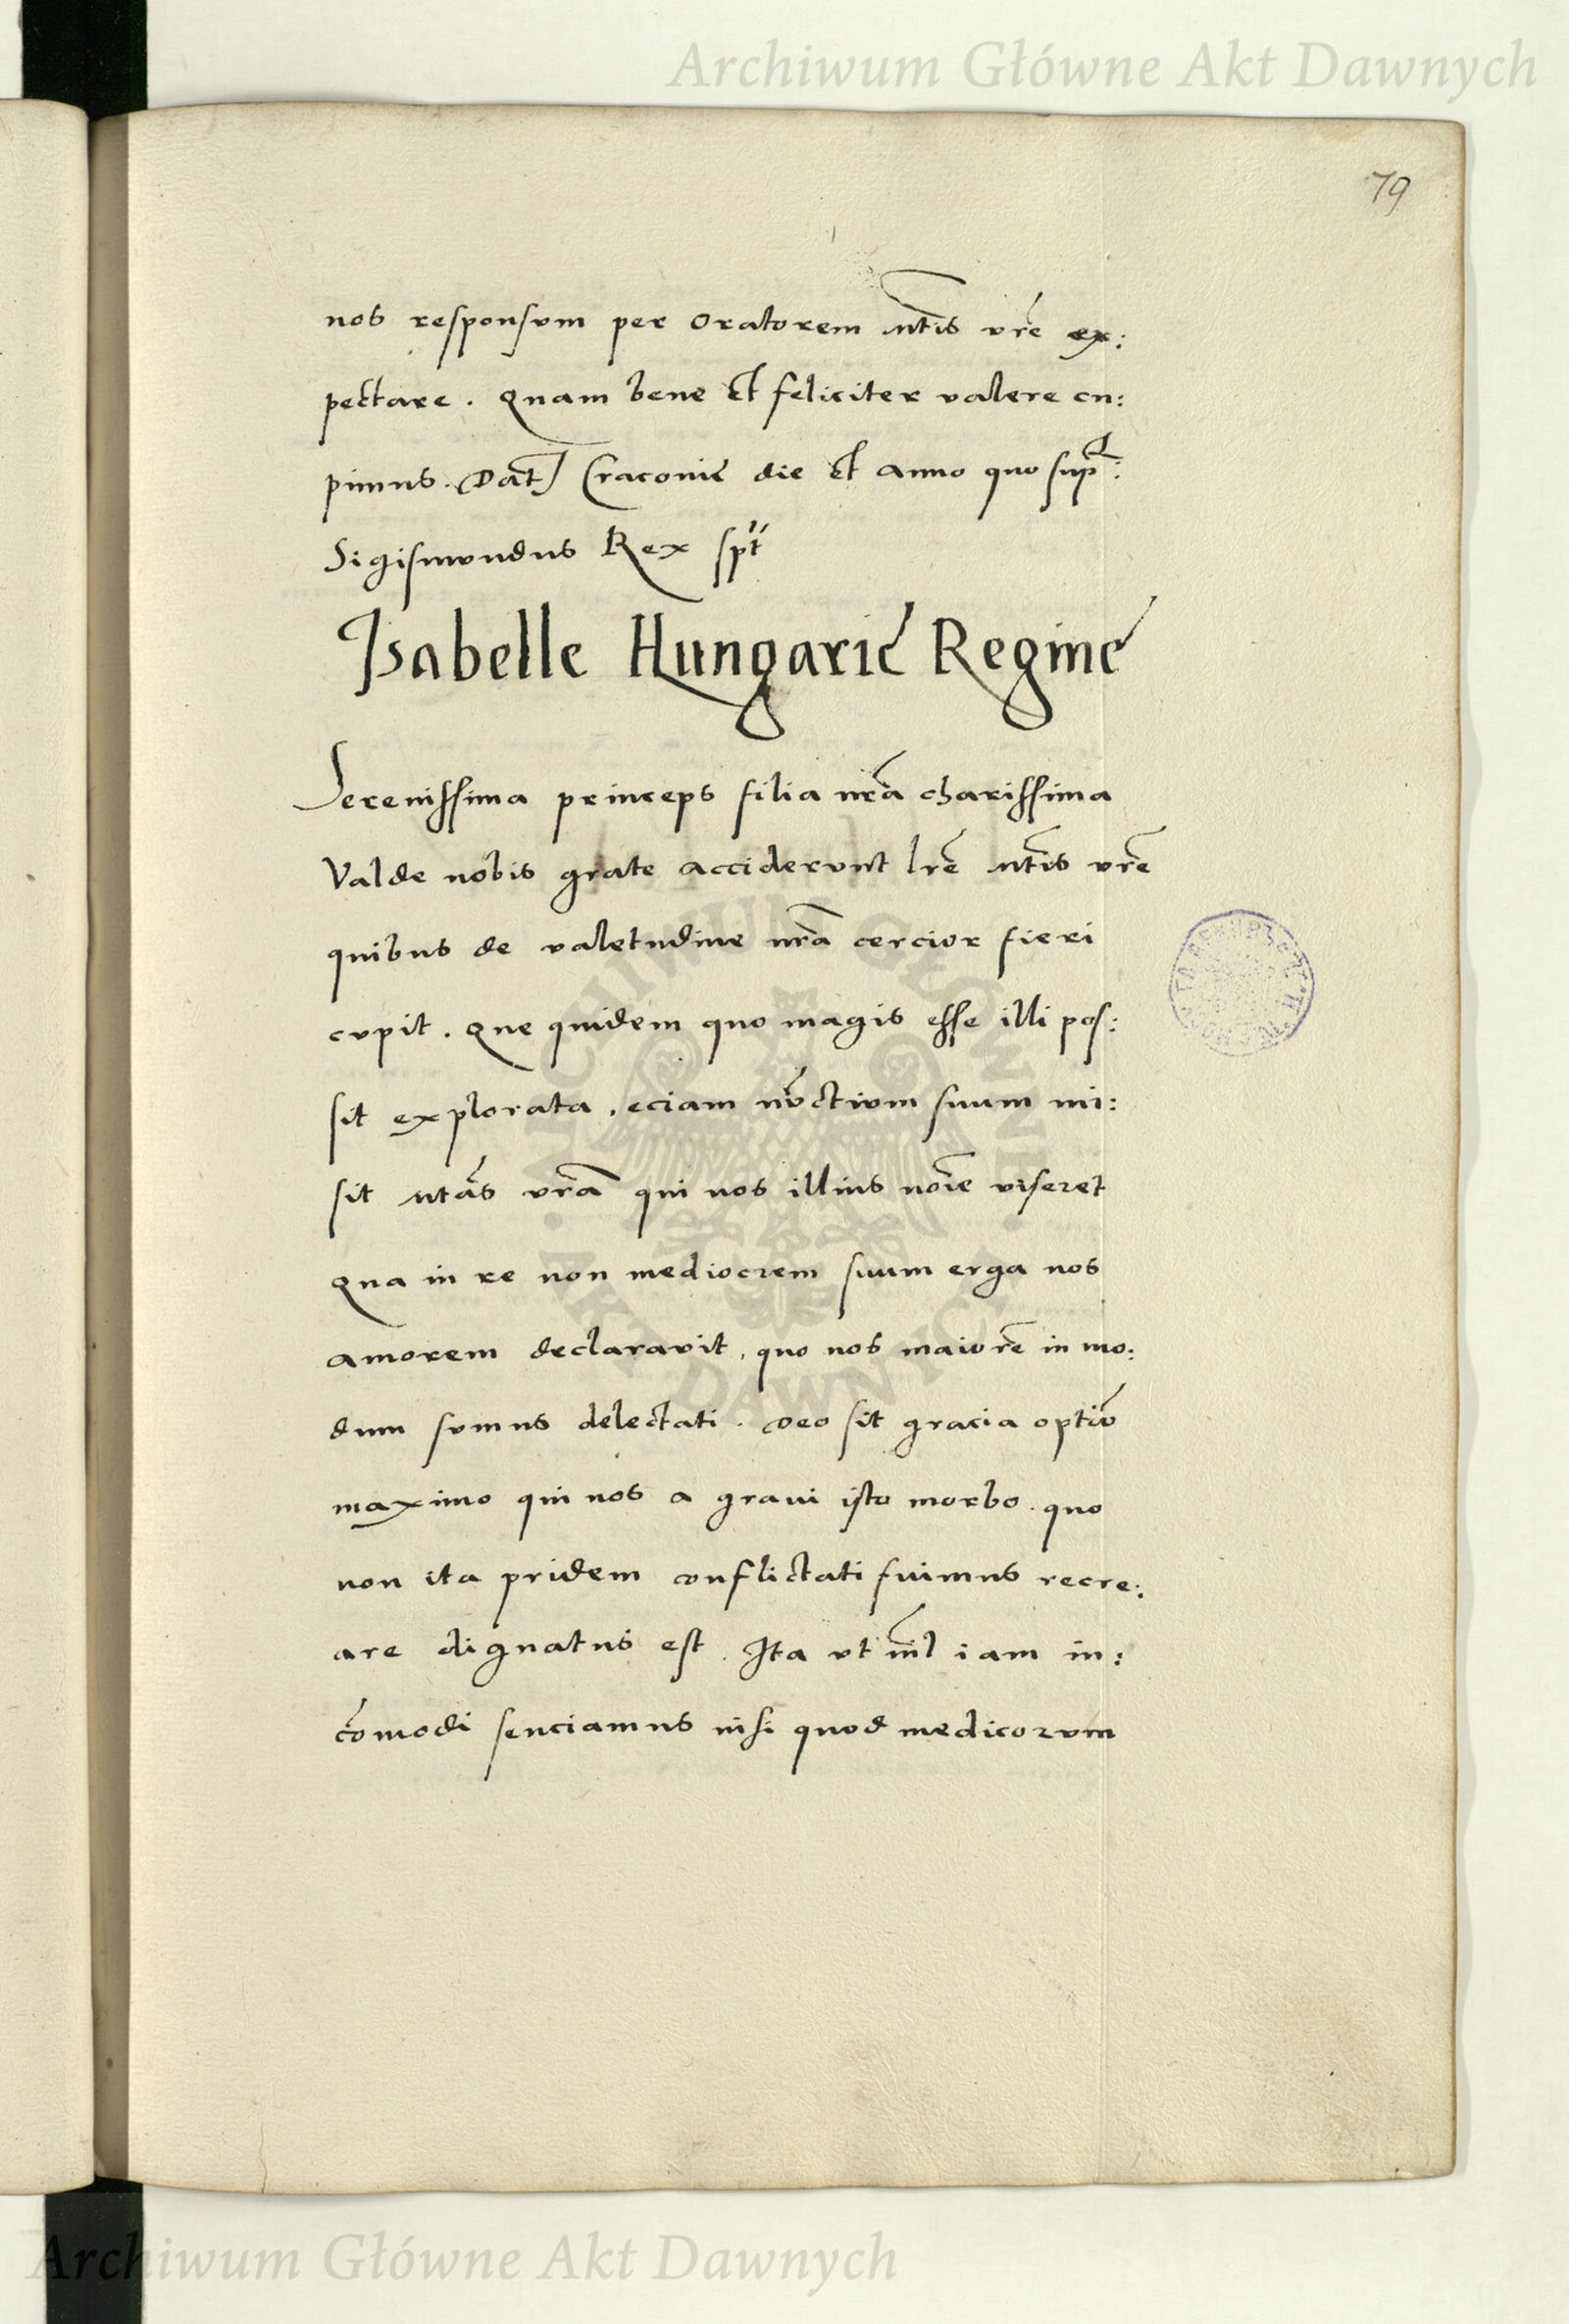 Archiwum Główne Akt Dawnych
79
nos responsvm per oratorem Mtis vrẽ ex:
pectare. Quam bene et feliciter valere cu:
pimus. Dat Cracovię die et anno quo sup:
Sigismundus Rex spt
Isabelle Hungarię Reginę
Serenissima princeps filia nrã charissima
Valde nobis grate acciderunt lrẽ Mtis vrẽ
quibus de valetudine nrã cercior fieri
cupit. Que quidem quo magis esse illi pos:
sit explorata, eciam nũctivm suum mi:
sit Mtãs vrã qui nos illius noĩe viseret
Qua in re non mediocrem suum erga nos
amorem declaravit, quo nos maiorẽ in mo:
dum sumus delectati. Deo sit gracia optĩo
maximo qui nos a gravi isto morbo. quo
non ita pridem conflictati fuimus recre:
are dignatus est. Ita vt nĩl iam in:
cõmodi senciamus nisi quod medicorvm
ARCHIWUM GŁÓWNE AKT DAWNYCH
Archiwum Główne Akt Dawnych